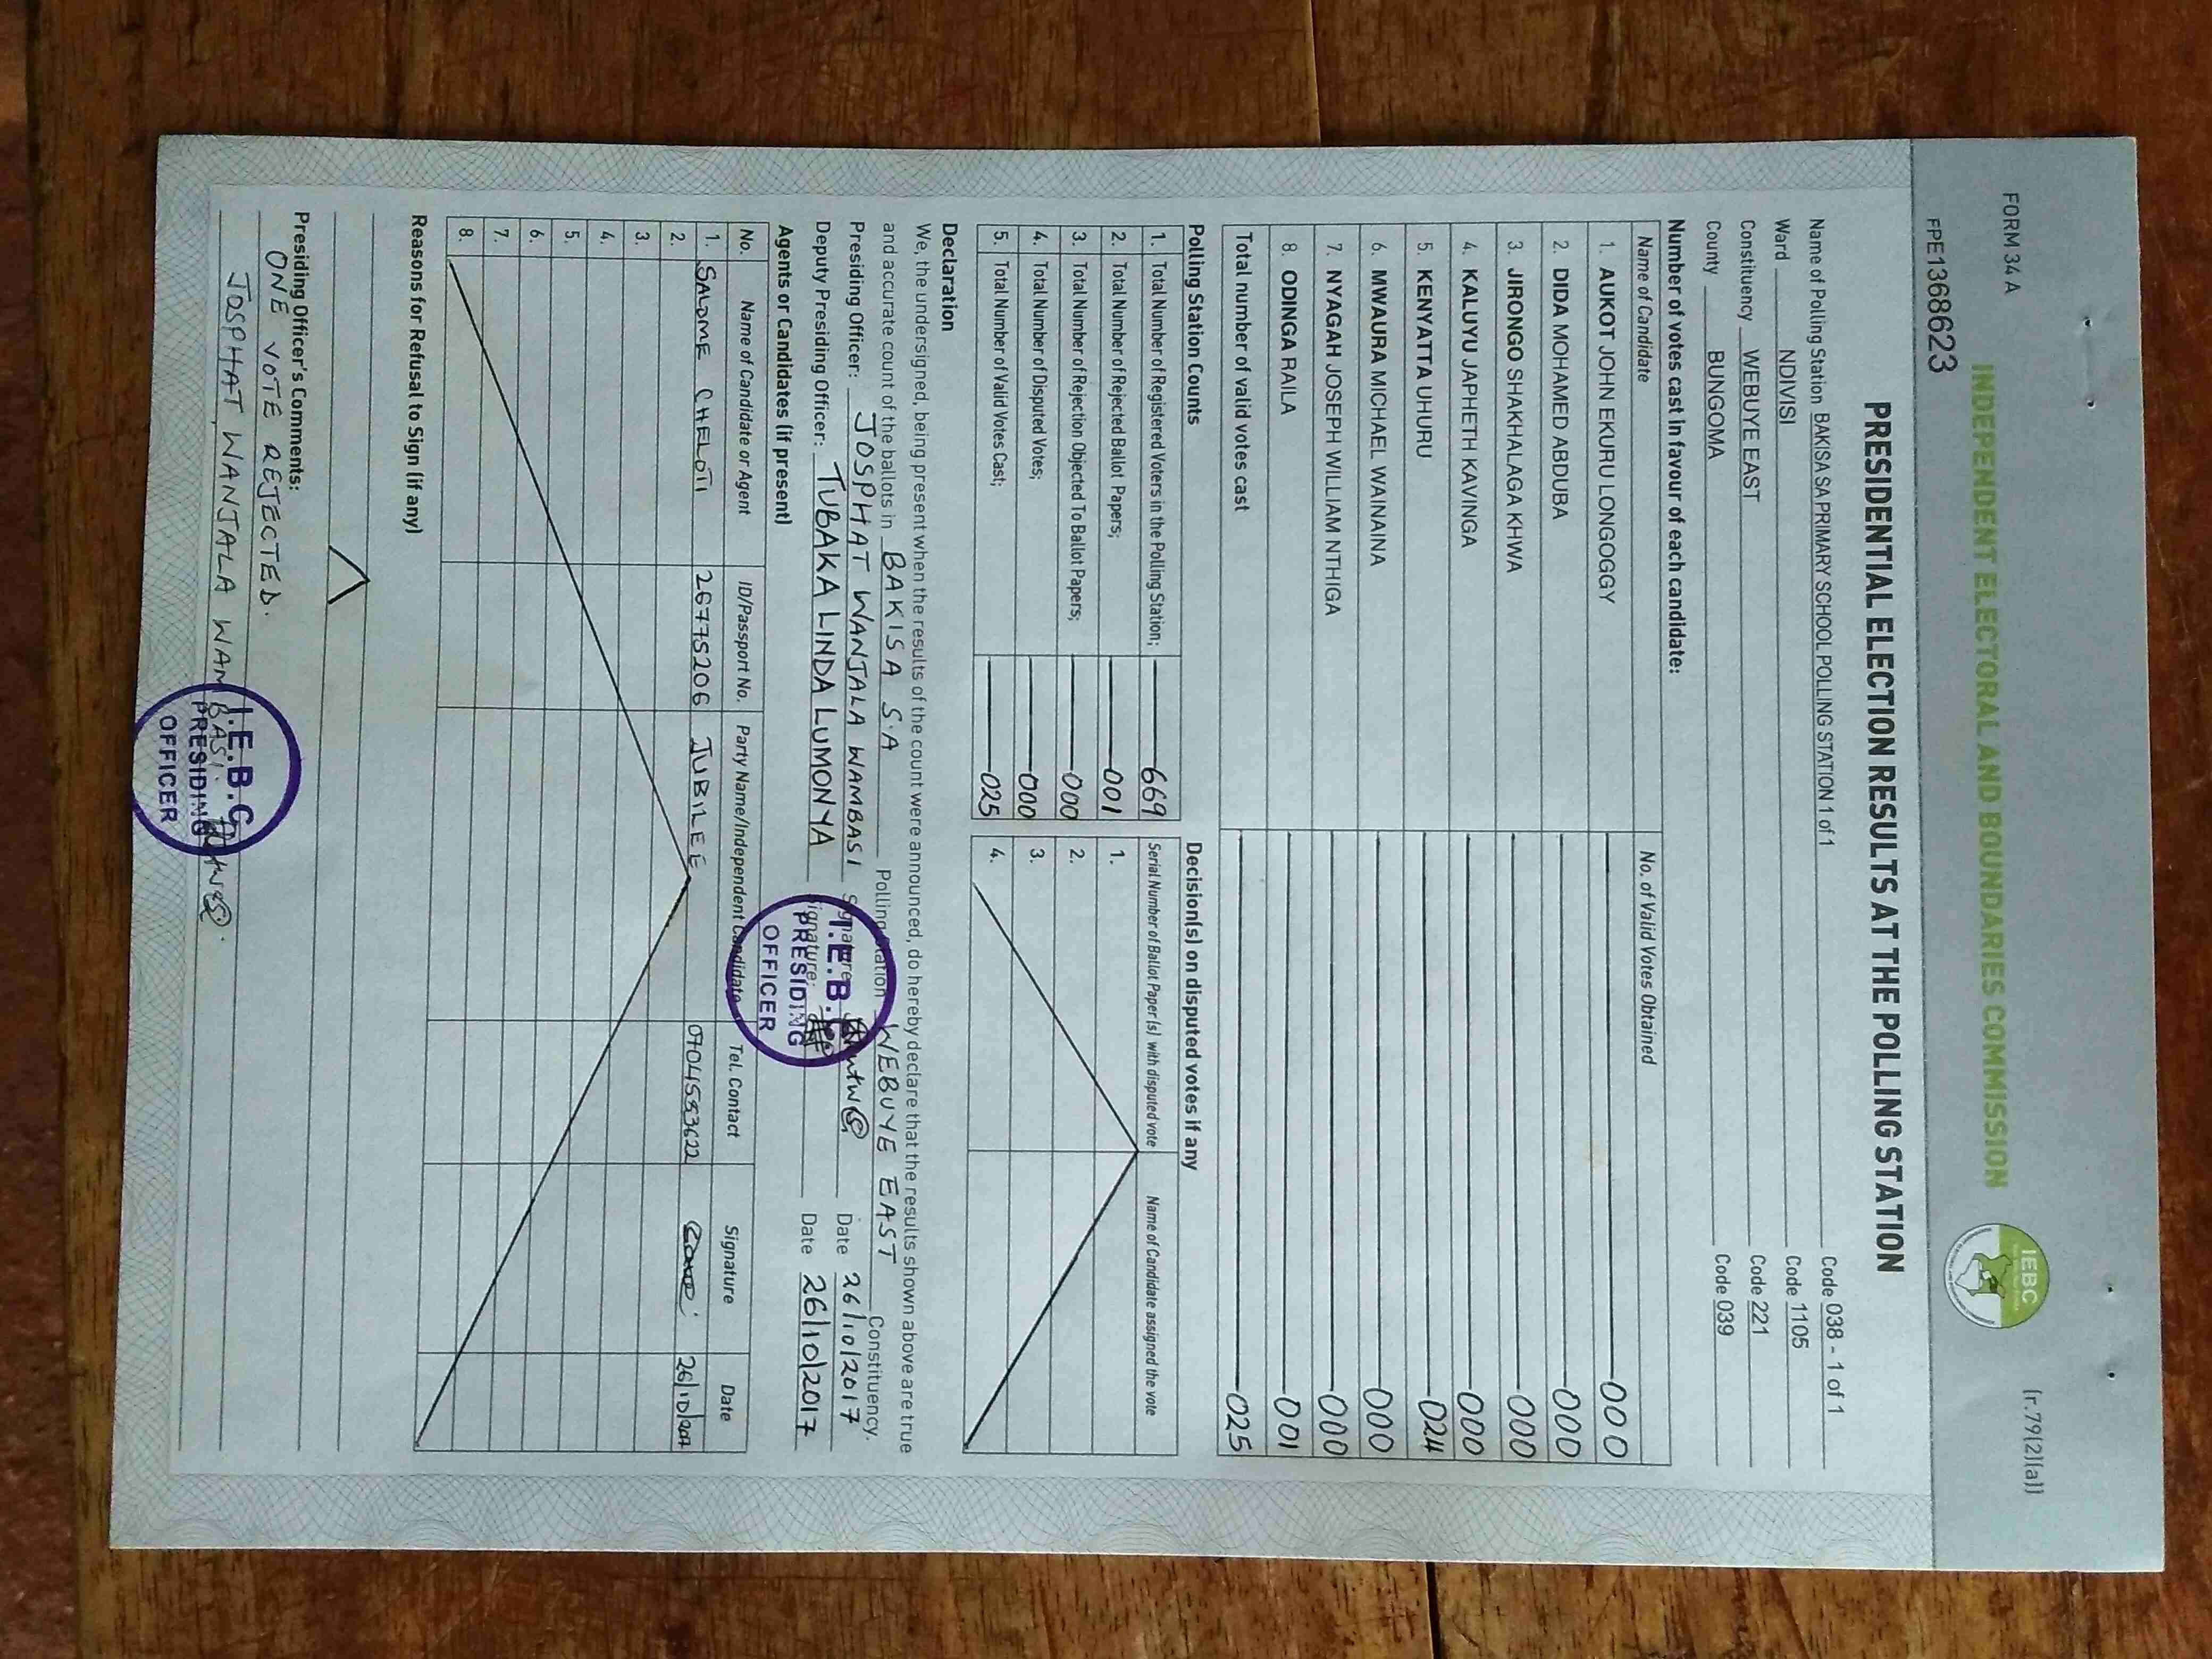 FORM 34 A
[r.79(2)(a)]
INDEPENDENT ELECTORAL AND BOUNDARIES COMMISSION
IEBC
FPE1368623
PRESIDENTIAL ELECTION RESULTS AT THE POLLING STATION
Name of Polling Station BAKISA SA PRIMARY SCHOOL POLLING STATION 1 of 1 Code 038 - 1 of 1
Ward NDIVISI Code 1105
Constituency WEBUYE EAST Code 221
County BUNGOMA Code 039
Number of votes cast in favour of each candidate:
Name of Candidate No. of Valid Votes Obtained
1. AUKOT JOHN EKURU LONGOGGY 000
2. DIDA MOHAMED ABDUBA 000
3. JIRONGO SHAKHALAGA KHWA 000
4. KALUYU JAPHETH KAVINGA 000
5. KENYATTA UHURU 024
6. MWAURA MICHAEL WAINAINA 000
7. NYAGAH JOSEPH WILLIAM NTHIGA 000
8. ODINGA RAILA 001
Total number of valid votes cast 025
Polling Station Counts
1. Total Number of Registered Voters in the Polling Station; 669
2. Total Number of Rejected Ballot Papers; 001
3. Total Number of Rejection Objected To Ballot Papers; 000
4. Total Number of Disputed Votes; 000
5. Total Number of Valid Votes Cast; 025
Decision(s) on disputed votes if any
Serial Number of Ballot Paper (s) with disputed vote Name of Candidate assigned the vote
1.
2.
3.
4.
Declaration
We, the undersigned, being present when the results of the count were announced, do hereby declare that the results shown above are true
and accurate count of the ballots in BAKISA S.A Polling Station WEBUYE EAST Constituency.
Presiding Officer: JOSPHAT WANJALA WAMBASI Signature: Date 26/10/2017
Deputy Presiding Officer: TUBAKA LINDA LUMONYA Signature: Date 26/10/2017
I.E.B.C
PRESIDING
OFFICER
Agents or Candidates (if present)
No. Name of Candidate or Agent ID/Passport No. Party Name/Independent Candidate Tel. Contact Signature Date
1. SALOME CHELOTI 26775206 JUBILEE 0704593622 26/10/2017
2.
3.
4.
5.
6.
7.
8.
Reasons for Refusal to Sign (if any)
Presiding Officer's Comments:
ONE VOTE REJECTED.
JOSPHAT WANJALA WAMBASI.
I.E.B.C
PRESIDING
OFFICER